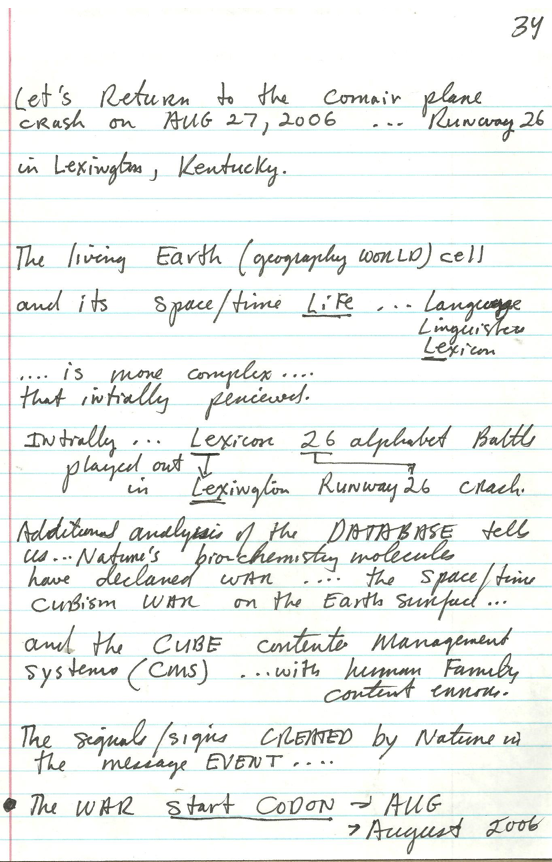 34
Let's Return to the comair plane
crash on AUG 27, 2006 ... Runway 26
in Lexington, Kentucky.
The living Earth (geography WORLD) cell
and its space/time LiFe ... Language
Linguistics
Lexicon
.... is more complex ....
that intially percieved.
Intially ... Lexicon 26 alphabet Battle
played out
in Lexington Runway 26 crash.
Additional analysis of the DATABASE tells
us... Nature's bio-chemistry molecules
have declared WAR .... the space/time
CUBism WAR on the Earth surface...
and the CUBE contents Management
systems (CMS) ... with human Family
content errors.
The signals/signs CREATED by Nature in
the message EVENT ....
• The WAR start CODON → AUG
→ August 2006